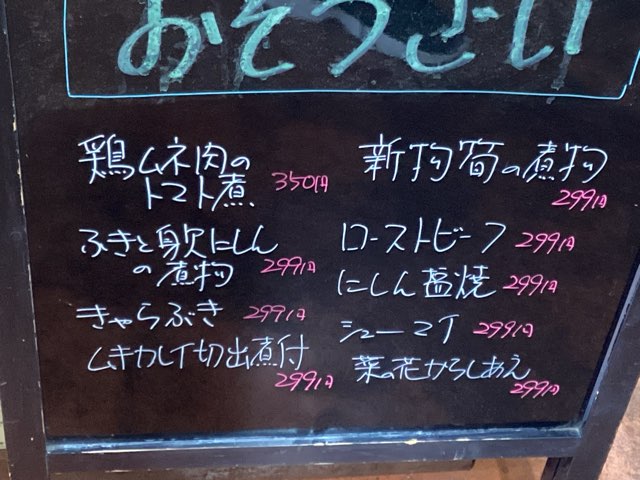 おそうざい
鶏ムネ肉の
トマト煮 350円
ふきと身欠にしん
の煮物 299円
きゃらぶき 299円
ムキカレイ切出煮付
299円
新物筍の煮物
299円
ローストビーフ 299円
にしん塩焼 299円
シューマイ 299円
菜の花からしあえ
299円